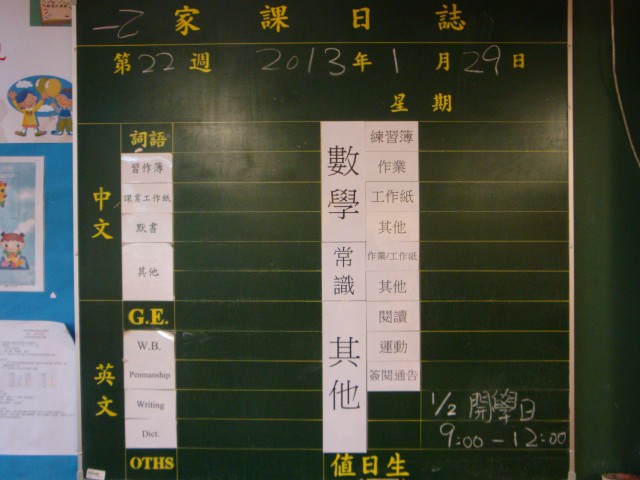 一乙 家課日誌
第22週 2013年1月29日
星期
中文
詞語
習作簿
課業工作紙
默書
其他
英文
G.E.
W.B.
Penmanship
Writing
Dict.
OTHS
數學
練習簿
作業
工作紙
其他
常識
作業/工作紙
其他
其他
閱讀
運動
簽閱通告
1/2 開學日
9:00-12:00
值日生